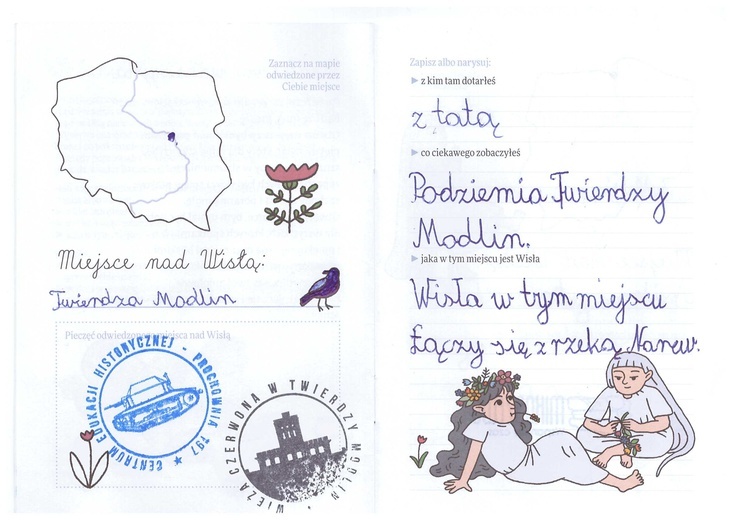 Zaznacz na mapie
odwiedzone przez
Ciebie miejsce
Miejsce nad Wisłą:
Twierdza Modlin
Pieczęć odwiedzonego miejsca nad Wisłą
CENTRUM EDUKACJI HISTORYCZNEJ - PROCHOWNIA 797 ★
WIEŻA CZERWONA W TWIERDZY MODLIN •
Zapisz albo narysuj:
z kim tam dotarłeś
z tatą
co ciekawego zobaczyłeś
Podziemia Twierdzy
Modlin.
jaka w tym miejscu jest Wisła
Wisła w tym miejscu
Łączy się z rzeką Narew.